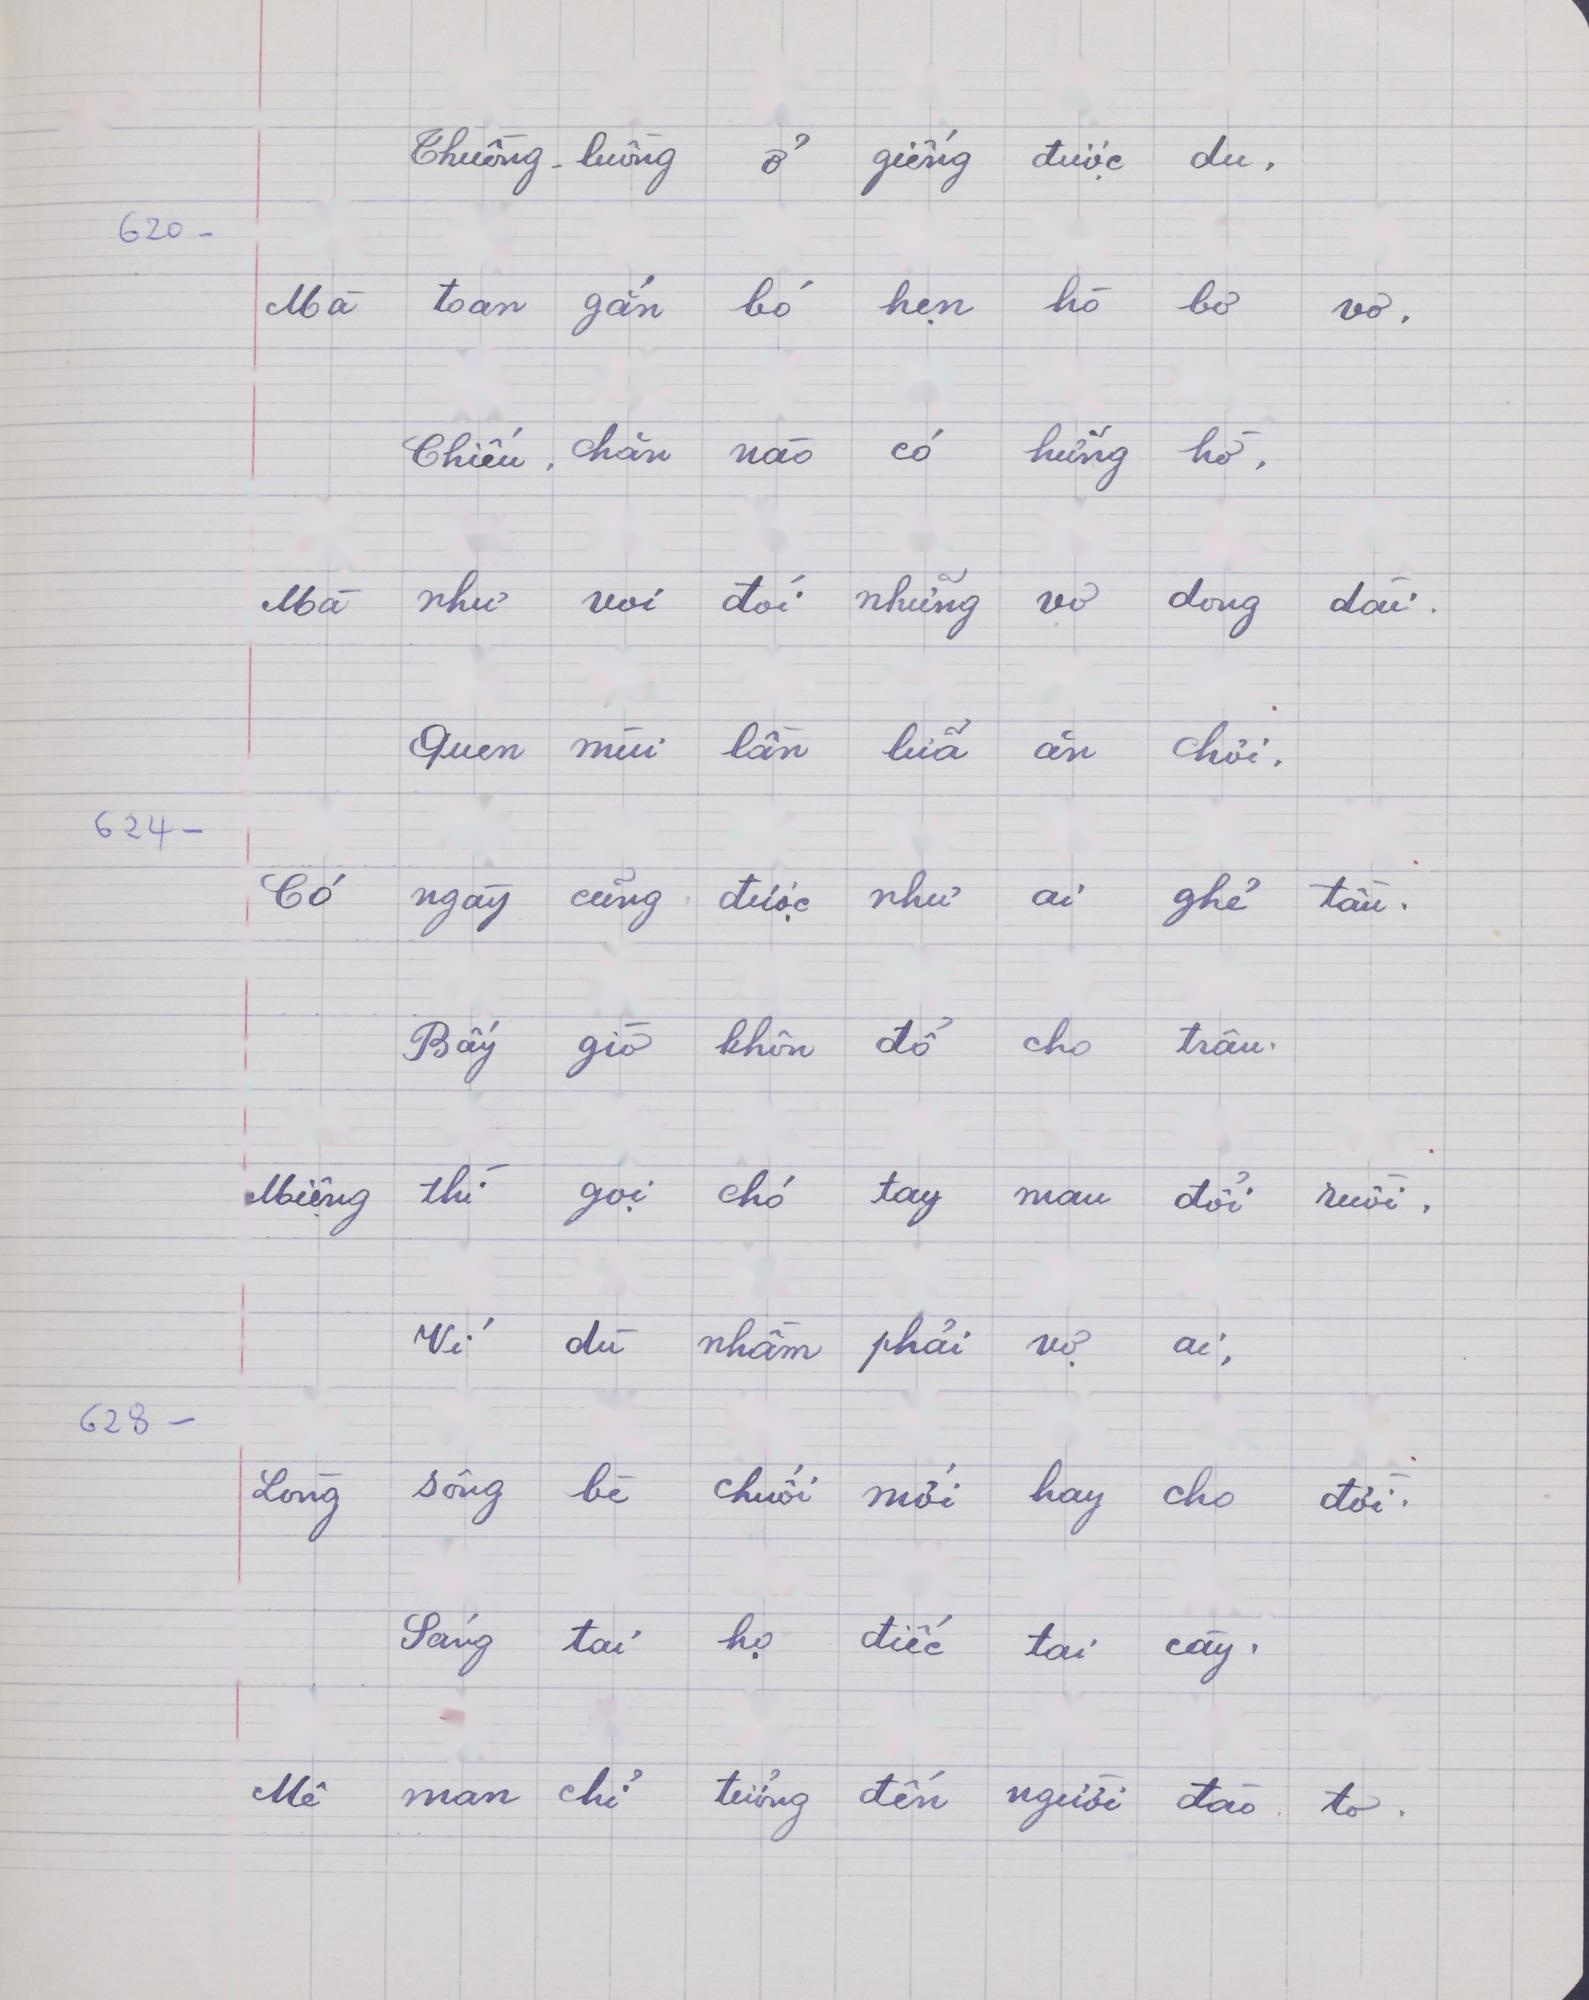 Thuồng-luồng ở giếng được du,
620-
Mà toan gắn bó hẹn hò bơ vơ.
Chiếu, chăn nào có hững hờ,
Mà như voi đói những vơ dong dài.
Quen mùi lần lữa ăn chơi,
624-
Có ngày cũng được như ai ghẻ tầu.
Bấy giờ khôn đổ cho trâu.
Miệng thì gọi chó tay mau đổi ruồi,
Ví dù nhầm phải vợ ai,
628-
Lòng sông bè chuối mới hay cho đời.
Sáng tai họ điếc tai cày.
Mê man chỉ tưởng đến người đào tơ.